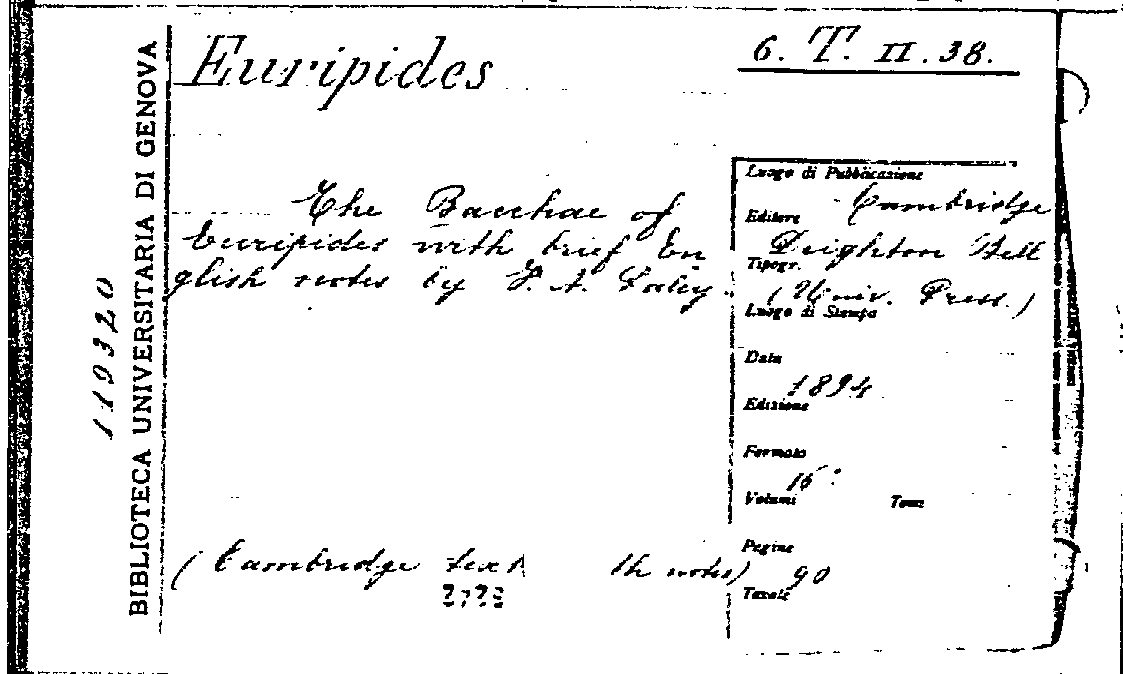 Euripides
6. T. II. 38.
The Bacchae of
Euripides with brief En
glish notes by F. A. Paley.
(Cambridge text th notes)
Luogo di Pubblicazione
Cambridge
Editore
Deighton Bell
Tipogr.
(Univ. Press.)
Luogo di Stampa
Data
1894
Edizione
Formato
16°
Volumi Tomi
Pagine
90
Tavole
BIBLIOTECA UNIVERSITARIA DI GENOVA
119320